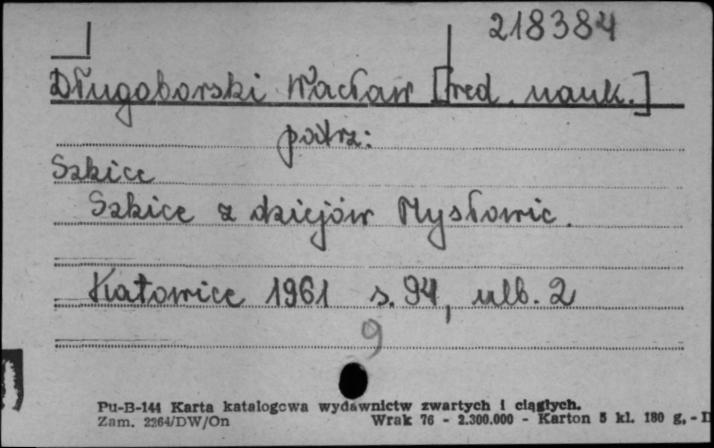 218384
Długoborski Wacław [red. nauk.]
patrz:
Szkice
Szkice z dziejów Mysłowic.
Katowice 1961 s. 94, ulb. 2
9
Pu-B-144 Karta katalogowa wydawnictw zwartych i ciągłych.
Zam. 2264/DW/On Wrak 76 - 2.300.000 - Karton 5 kl. 180 g. - D